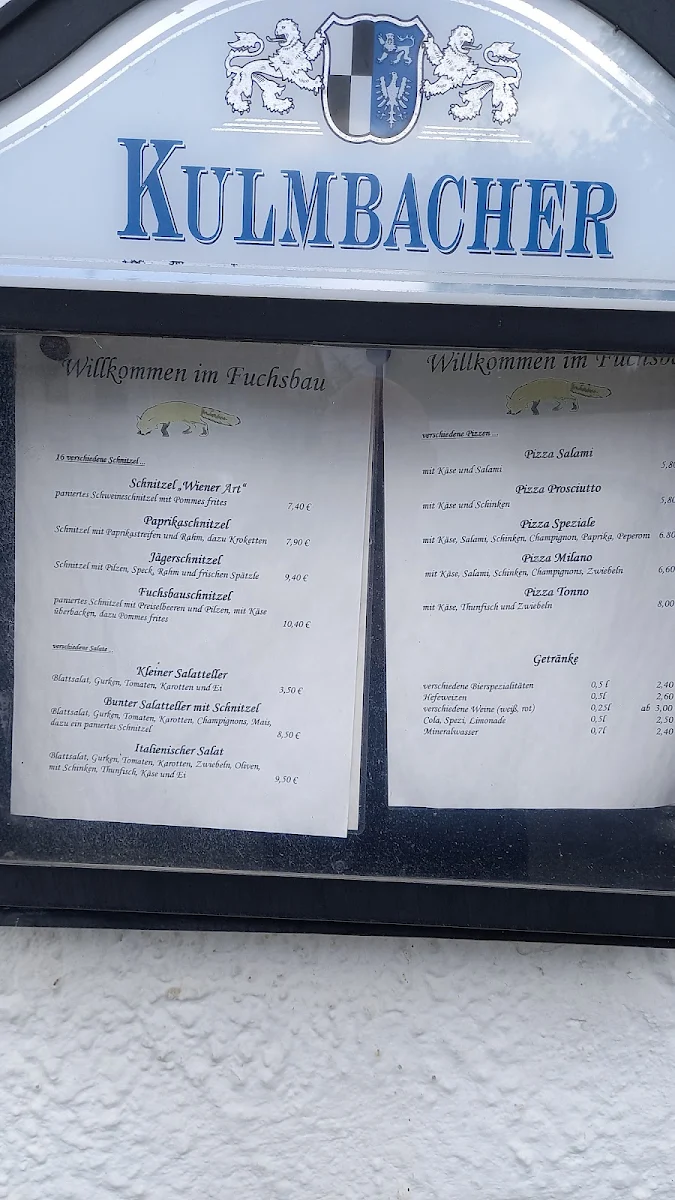 KULMBACHER
Willkommen im Fuchsbau
16 verschiedene Schnitzel...
Schnitzel „Wiener Art“
paniertes Schweineschnitzel mit Pommes frites 7,40 €
Paprikaschnitzel
Schnitzel mit Paprikastreifen und Rahm, dazu Kroketten 7,90 €
Jägerschnitzel
Schnitzel mit Pilzen, Speck, Rahm und frischen Spätzle 9,40 €
Fuchsbauschnitzel
paniertes Schnitzel mit Preiselbeeren und Pilzen, mit Käse
überbacken, dazu Pommes frites 10,40 €
verschiedene Salate...
Kleiner Salatteller
Blattsalat, Gurken, Tomaten, Karotten und Ei 3,50 €
Bunter Salatteller mit Schnitzel
Blattsalat, Gurken, Tomaten, Karotten, Champignons, Mais,
dazu ein paniertes Schnitzel 8,50 €
Italienischer Salat
Blattsalat, Gurken, Tomaten, Karotten, Zwiebeln, Oliven,
mit Schinken, Thunfisch, Käse und Ei 9,50 €
Willkommen im Fuchsba
verschiedene Pizzen...
Pizza Salami
mit Käse und Salami 5,80
Pizza Prosciutto
mit Käse und Schinken 5,80
Pizza Speziale
mit Käse, Salami, Schinken, Champignon, Paprika, Peperoni 6.80
Pizza Milano
mit Käse, Salami, Schinken, Champignons, Zwiebeln 6,60
Pizza Tonno
mit Käse, Thunfisch und Zwiebeln 8,00
Getränke
verschiedene Bierspezialitäten 0,5 l 2,40
Hefeweizen 0,5l 2,60
verschiedene Weine (weiß, rot) 0,25l ab 3,00
Cola, Spezi, Limonade 0,5l 2,50
Mineralwasser 0,7l 2,40